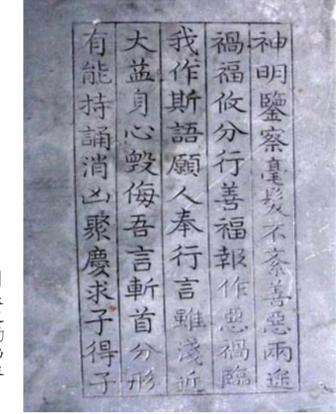 神明鑒察毫髮不紊善惡兩途
禍福攸分行善福報作惡禍臨
我作斯語願人奉行言雖淺近
大益身心戲侮吾言斬首分形
有能持誦消凶聚慶求子得子